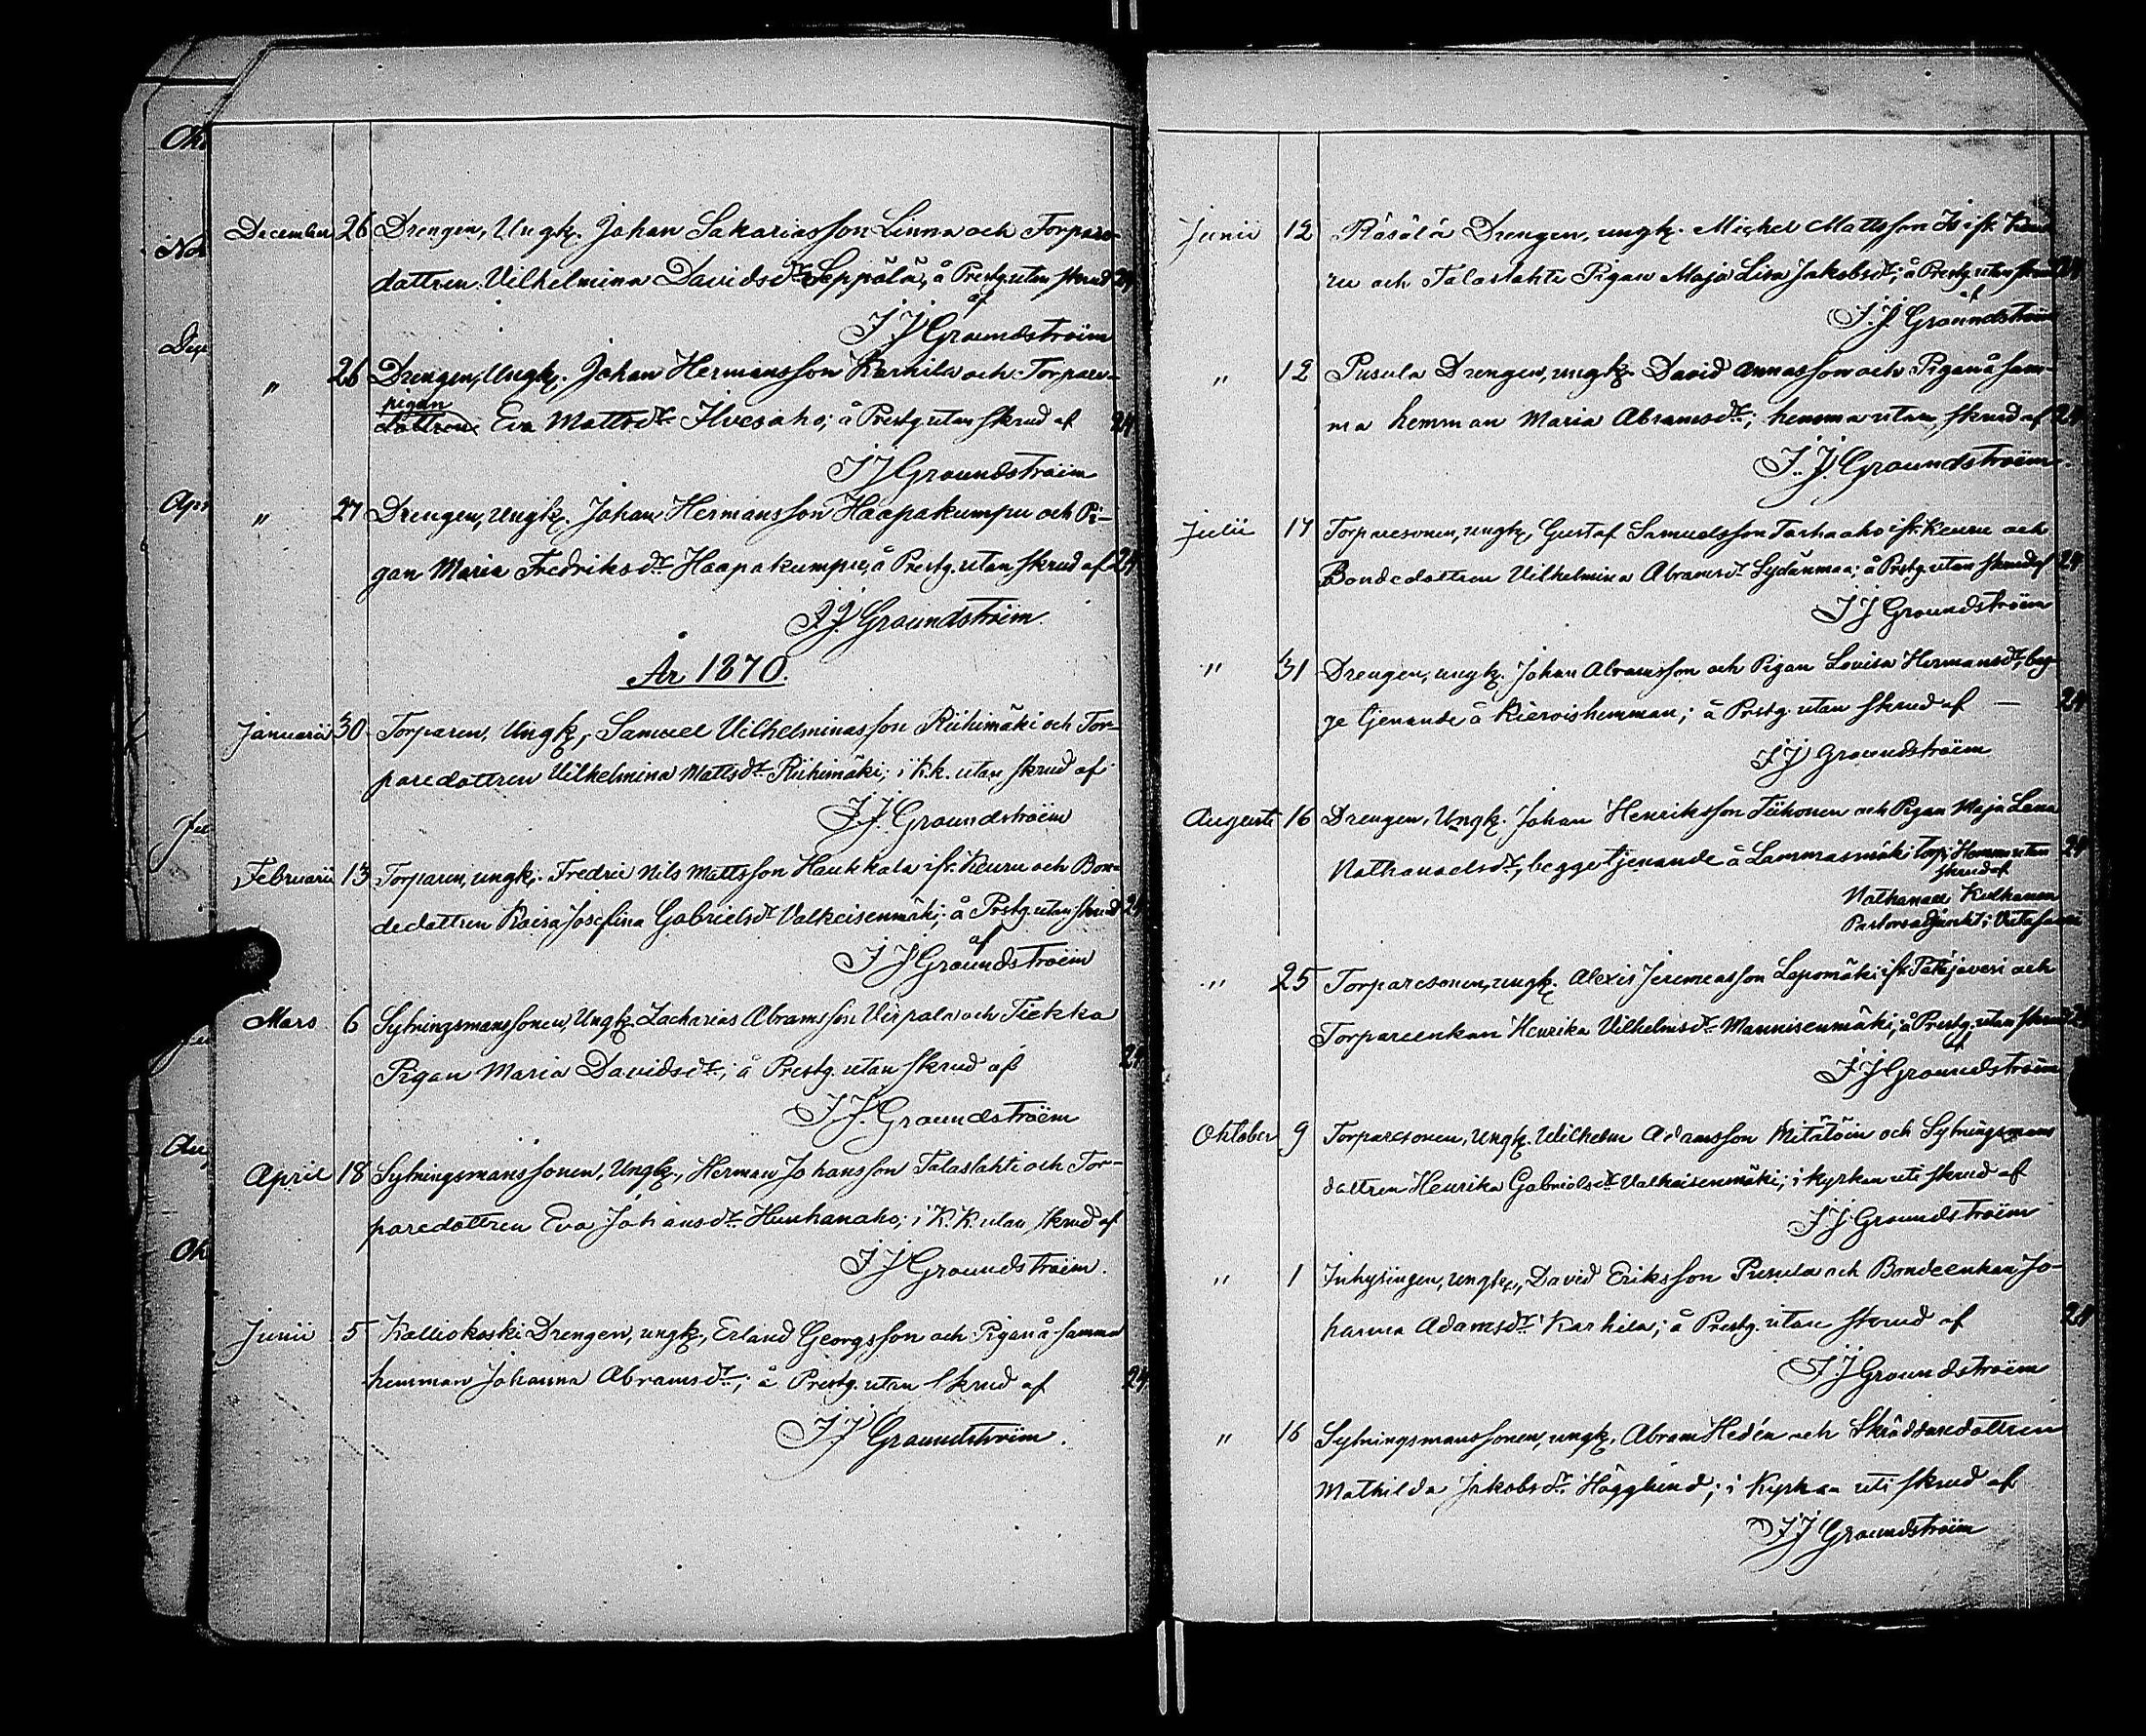 December 26 Drengen, Ungk. Johan Sakariasson Linna och Torpare-
dottren Vilhelmina Davidsdr Seppälä, å Prestg. utan skrud 24
af
J J Groundstroëm
" 26 Drengen, Ungk. Johan Hermansson Karhila och Torpare-
pigan
dottren Eva Mattsdr Ilvesaho; å Prestg. utan skrud af 24
J J Groundstroëm
" 27 Drengen, Ungk. Johan Hermansson Haapakumpu och Pi-
gan Maria Fredriksdr Haapakumpu, å Prestg. utan skrud af 24
J. J. Groundstroëm.
År 1870.
Januarii 30 Torparen, Ungk, Samuel Vilhelminasson Riihimäki och Tor-
paredottren Vilhelmina Mattsdr Riihimäki; i K.k. utan skrud af
J. J. Groundstroëm
Februarii 13 Torparen, ungk. Fredric Nils Mattsson Haukkala ifr. Keuru och Bon-
dedottren Kaisa Josefina Gabrielsdr Valkeisenmäki; å Prstg. utan skrud 24
af
J J Groundstroëm
Mars 6 Sytningsmanssonen, Ungk. Zacharias Abramsson Virpala och Tiekka
Pigan Maria Davidsdr; å Prestg. utan skrud af 24
J. J. Groundstroëm
April 18 Sytningsmanssonen, Ungk., Herman Johansson Talaslahti och Tor-
paredottren Eva Johansdr Huuhanaho; i K.K. utan skrud af
J J Groundstroëm.
Junii 5 Kalliokoski Drengen, ungk, Erland Georgsson och Pigan å samma
hemman Johanna Abramsdr; å Prestg. utan skrud af 24
J J Groundstroëm.
Junii 12 Räsälä Drengen, ungk. Michel Mattsson ifr. Keu-
ru och Talaslahti Pigan Maja Lisa Jakobsdr; å Prestg. utan skrud 24
af
J. J. Groundstroëm
" 12 Pusula Drengen, ungk. David Annasson och Pigan å sam-
ma hemman Maria Abramsdr; hemma utan skrud af 24
J. J. Groundstroëm.
Julii 17 Torparesonen, ungk, Gustaf Samuelsson Tarhaaho ifr. Keuru och
Bondedottren Vilhelmina Abramsdr Sydänmaa; å Prstg. utan skrud af 24
J J Groundstroëm
" 31 Drengen, ungk. Johan Abramsson och Pigan Lovisa Hermansdr, beg-
ge tjenande å hemman; å Prstg. utan skrud af — 24
J J Groundstroëm
Augusti 16 Drengen, Ungk. Johan Henriksson Tiihonen och Pigan Maja Lena
Nathanaelsdr, begge tjenande å Lammasmäki torp; Hemma utan 24
skrud af
Nathanael
Pastorsadjunkt i
" 25 Torparesonen, ungk. Alexis Jeremeasson Lepomäki ifr. Pätäjävesi och
Torpareenkan Henrika Vilhelmsdr Mannisenmäki; å Prestg. utan skrud 24
af
J J Groundstroëm
Oktober 9 Torparesonen, Ungk. Wilhelm Adamsson och Sytningsmans
dottren Henrika Gabrielsdr Valkeisenmäki; i kyrkan uti skrud af
J J Groundstroëm
" 1 Inhysingen, ungk., David Eriksson Pusula och Bondeenkan Jo-
hanna Adamsdr Karhila; å Prestg. utan skrud af 24
J J Groundstroëm
" 16 Sytningsmanssonen, ungk. Abram Hedén och Skräddaredottren
Mathilda Jakobsdr Högglund; i Kyrkan uti skrud af
J J Groundstroëm